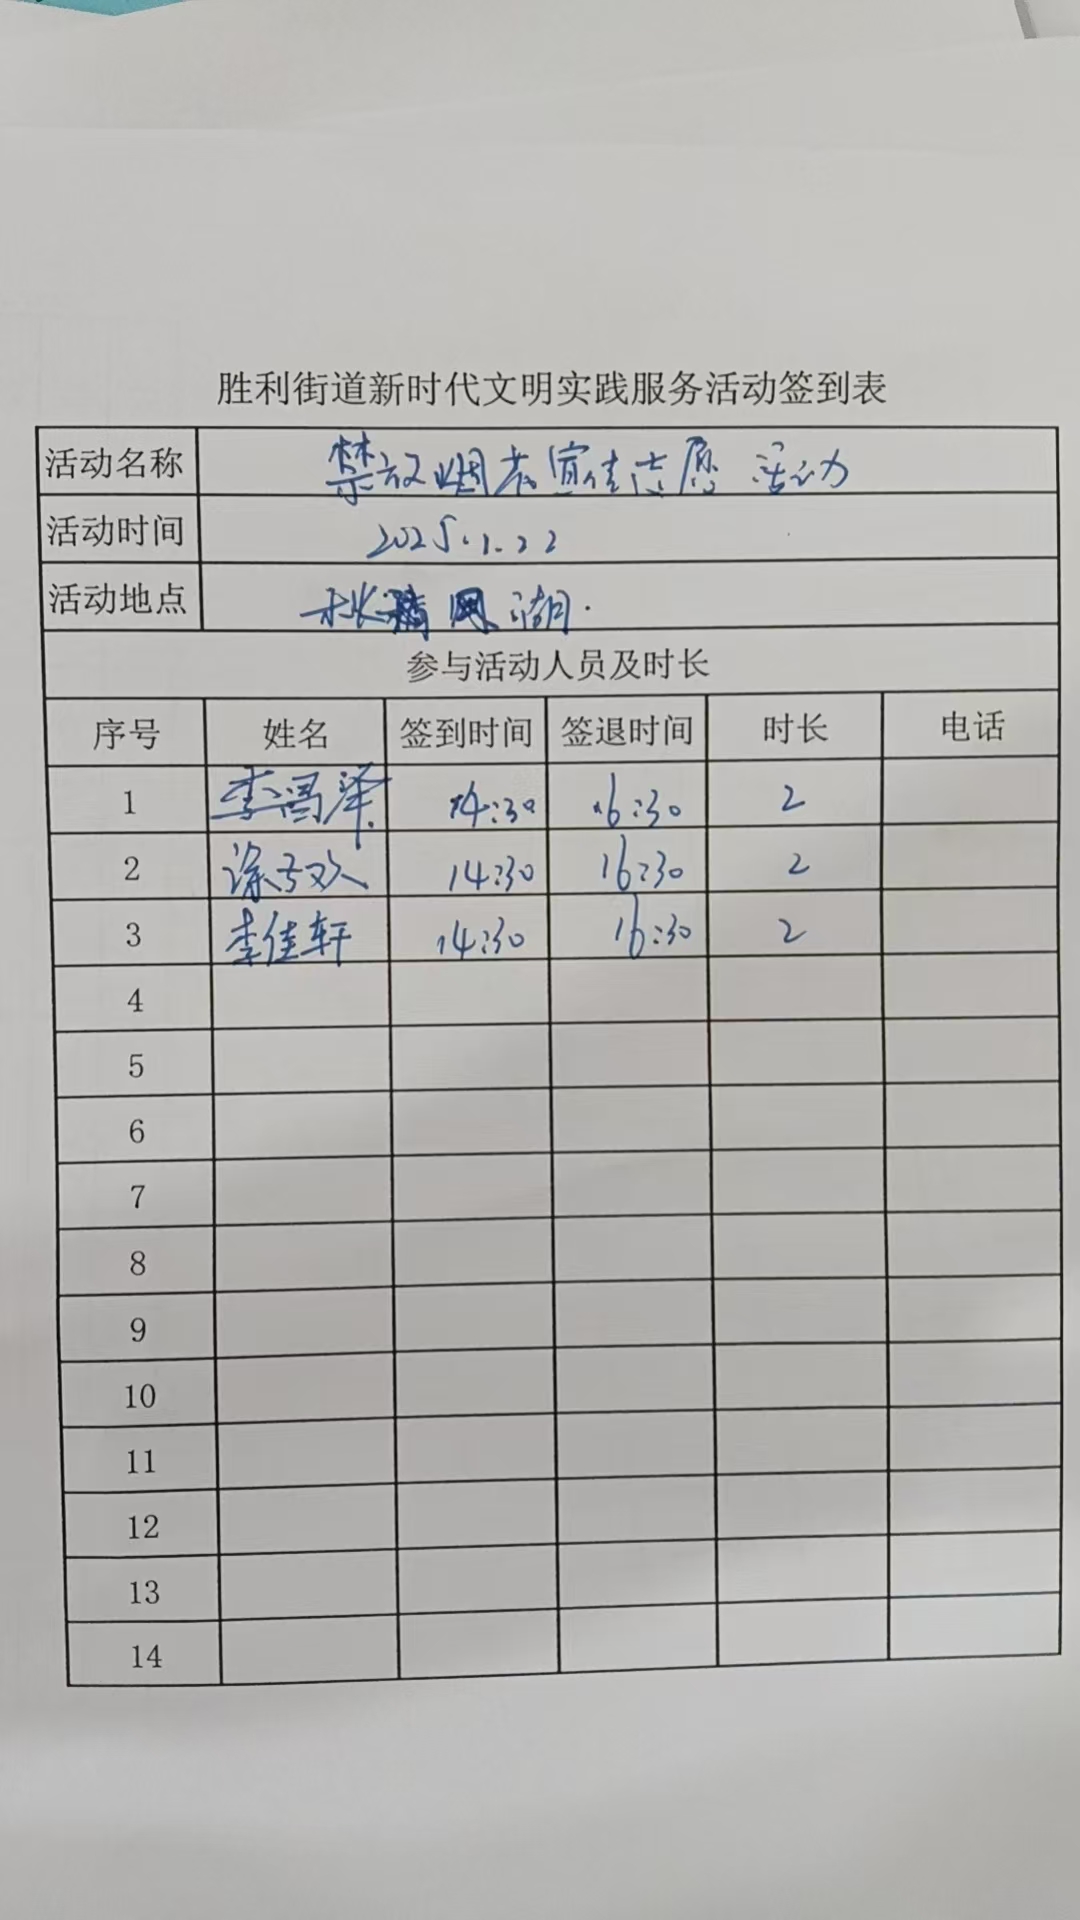 胜利街道新时代文明实践服务活动签到表
活动名称 禁放烟花宣传志愿 活动
活动时间 2025.1.22
活动地点 湖.
参与活动人员及时长
序号 姓名 签到时间 签退时间 时长 电话
1 李冯泽 14:30 16:30 2
2 涂 欢 14:30 16:30 2
3 李佳轩 14:30 16:30 2
4
5
6
7
8
9
10
11
12
13
14